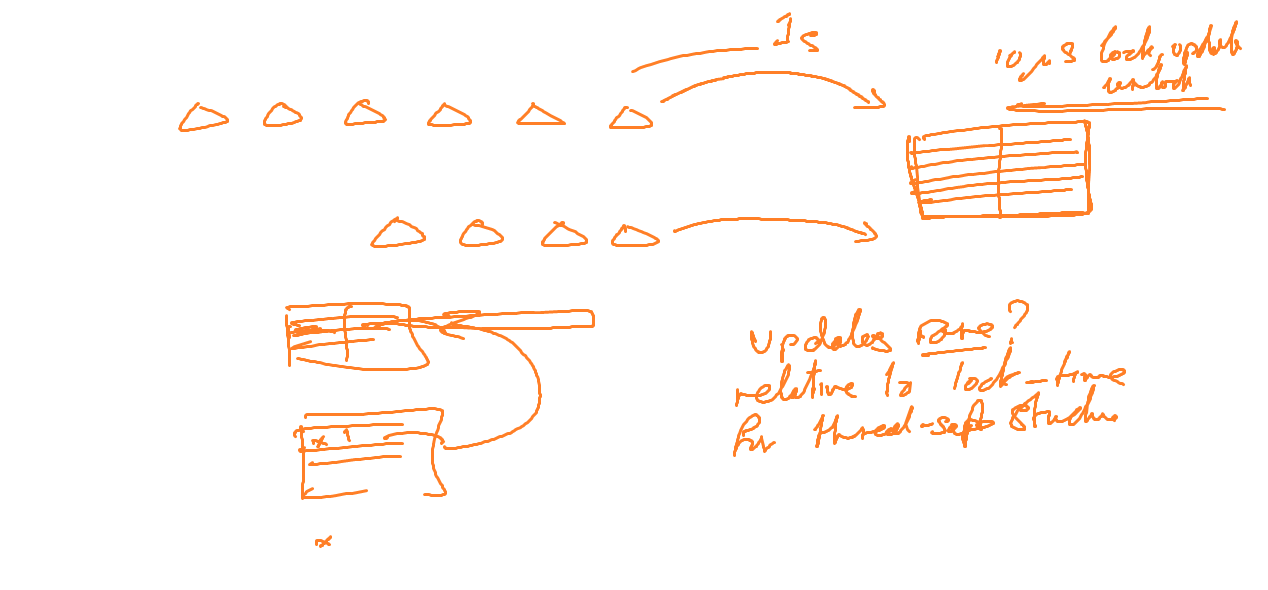 1s
10 μs lock, update
unlock
updates rare?
relative to lock-time
for thread-safe structure
x 1
x